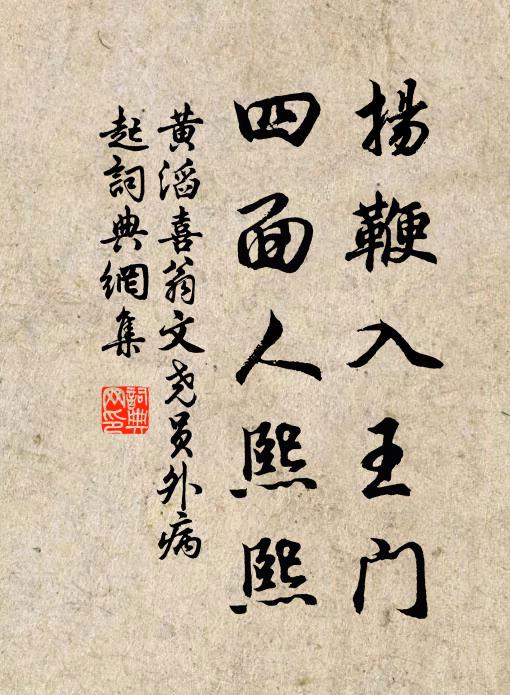 揚鞭入王门
四面人熙熙
黄滔喜翁文尧員外病
起詞典網集
詞典
网印